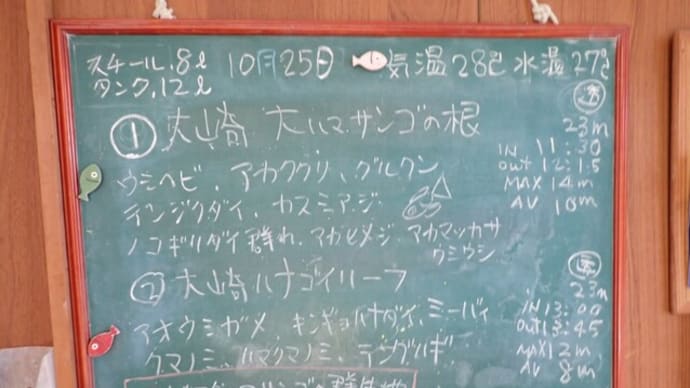 スチール.8ℓ 10月25日 気温28℃ 水温27℃
タンク.12ℓ
① 大崎 大ハマサンゴの根
23m
IN 11:30
out 12:15
MAX 14m
AV 10m
ウミヘビ、アカククリ、グルクン
テンジクダイ、カスミアジ
ノコギリダイ群れ、マガヒメジ、アカマッカサ
ウミウシ
② 大崎ハナゴイリーフ
23m
IN 13:00
out 13:45
MAX 12m
AV 8m
アオウミガメ キンギョハナダイ、ミーバイ
クマノミ、ハマクマノミ、テングハギ